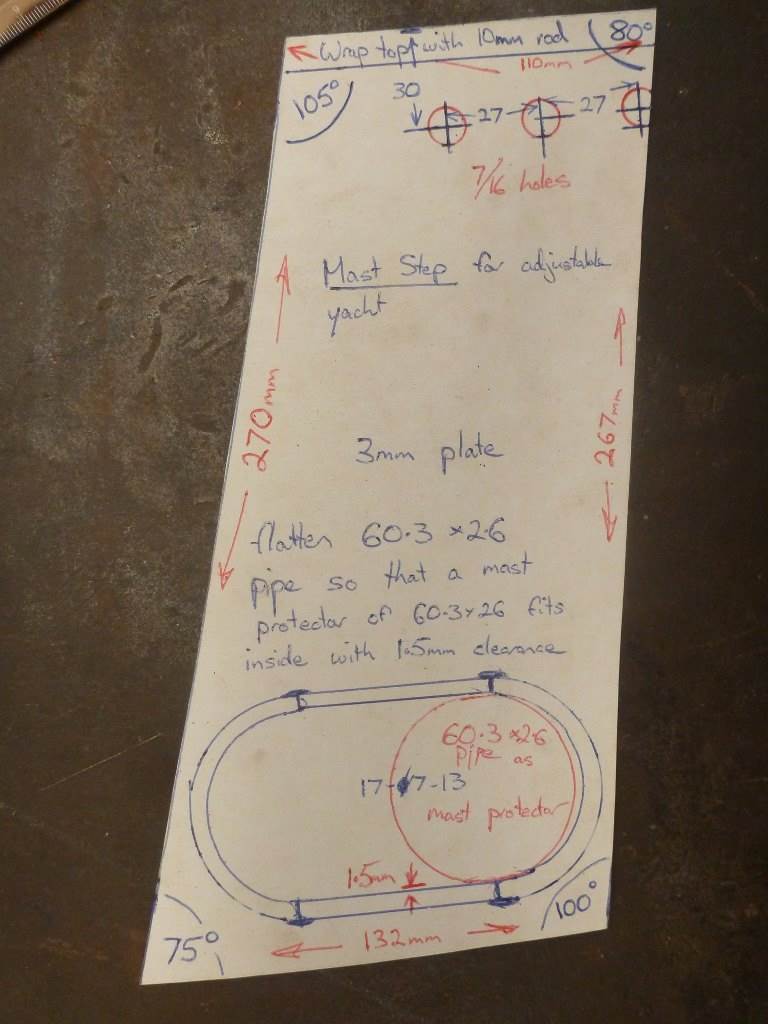 Wrap top with 10mm rod
80°
110mm
105°
30
27
27
7/16 holes
Mast Step for adjustable
yacht
270mm
267mm
3mm plate
flatten 60.3 x2.6
pipe so that a mast
protector of 60.3x26 fits
inside with 1.5mm clearance
60.3 x2.6
pipe as
mast protector
17-7-13
1.5mm
75°
132mm
100°